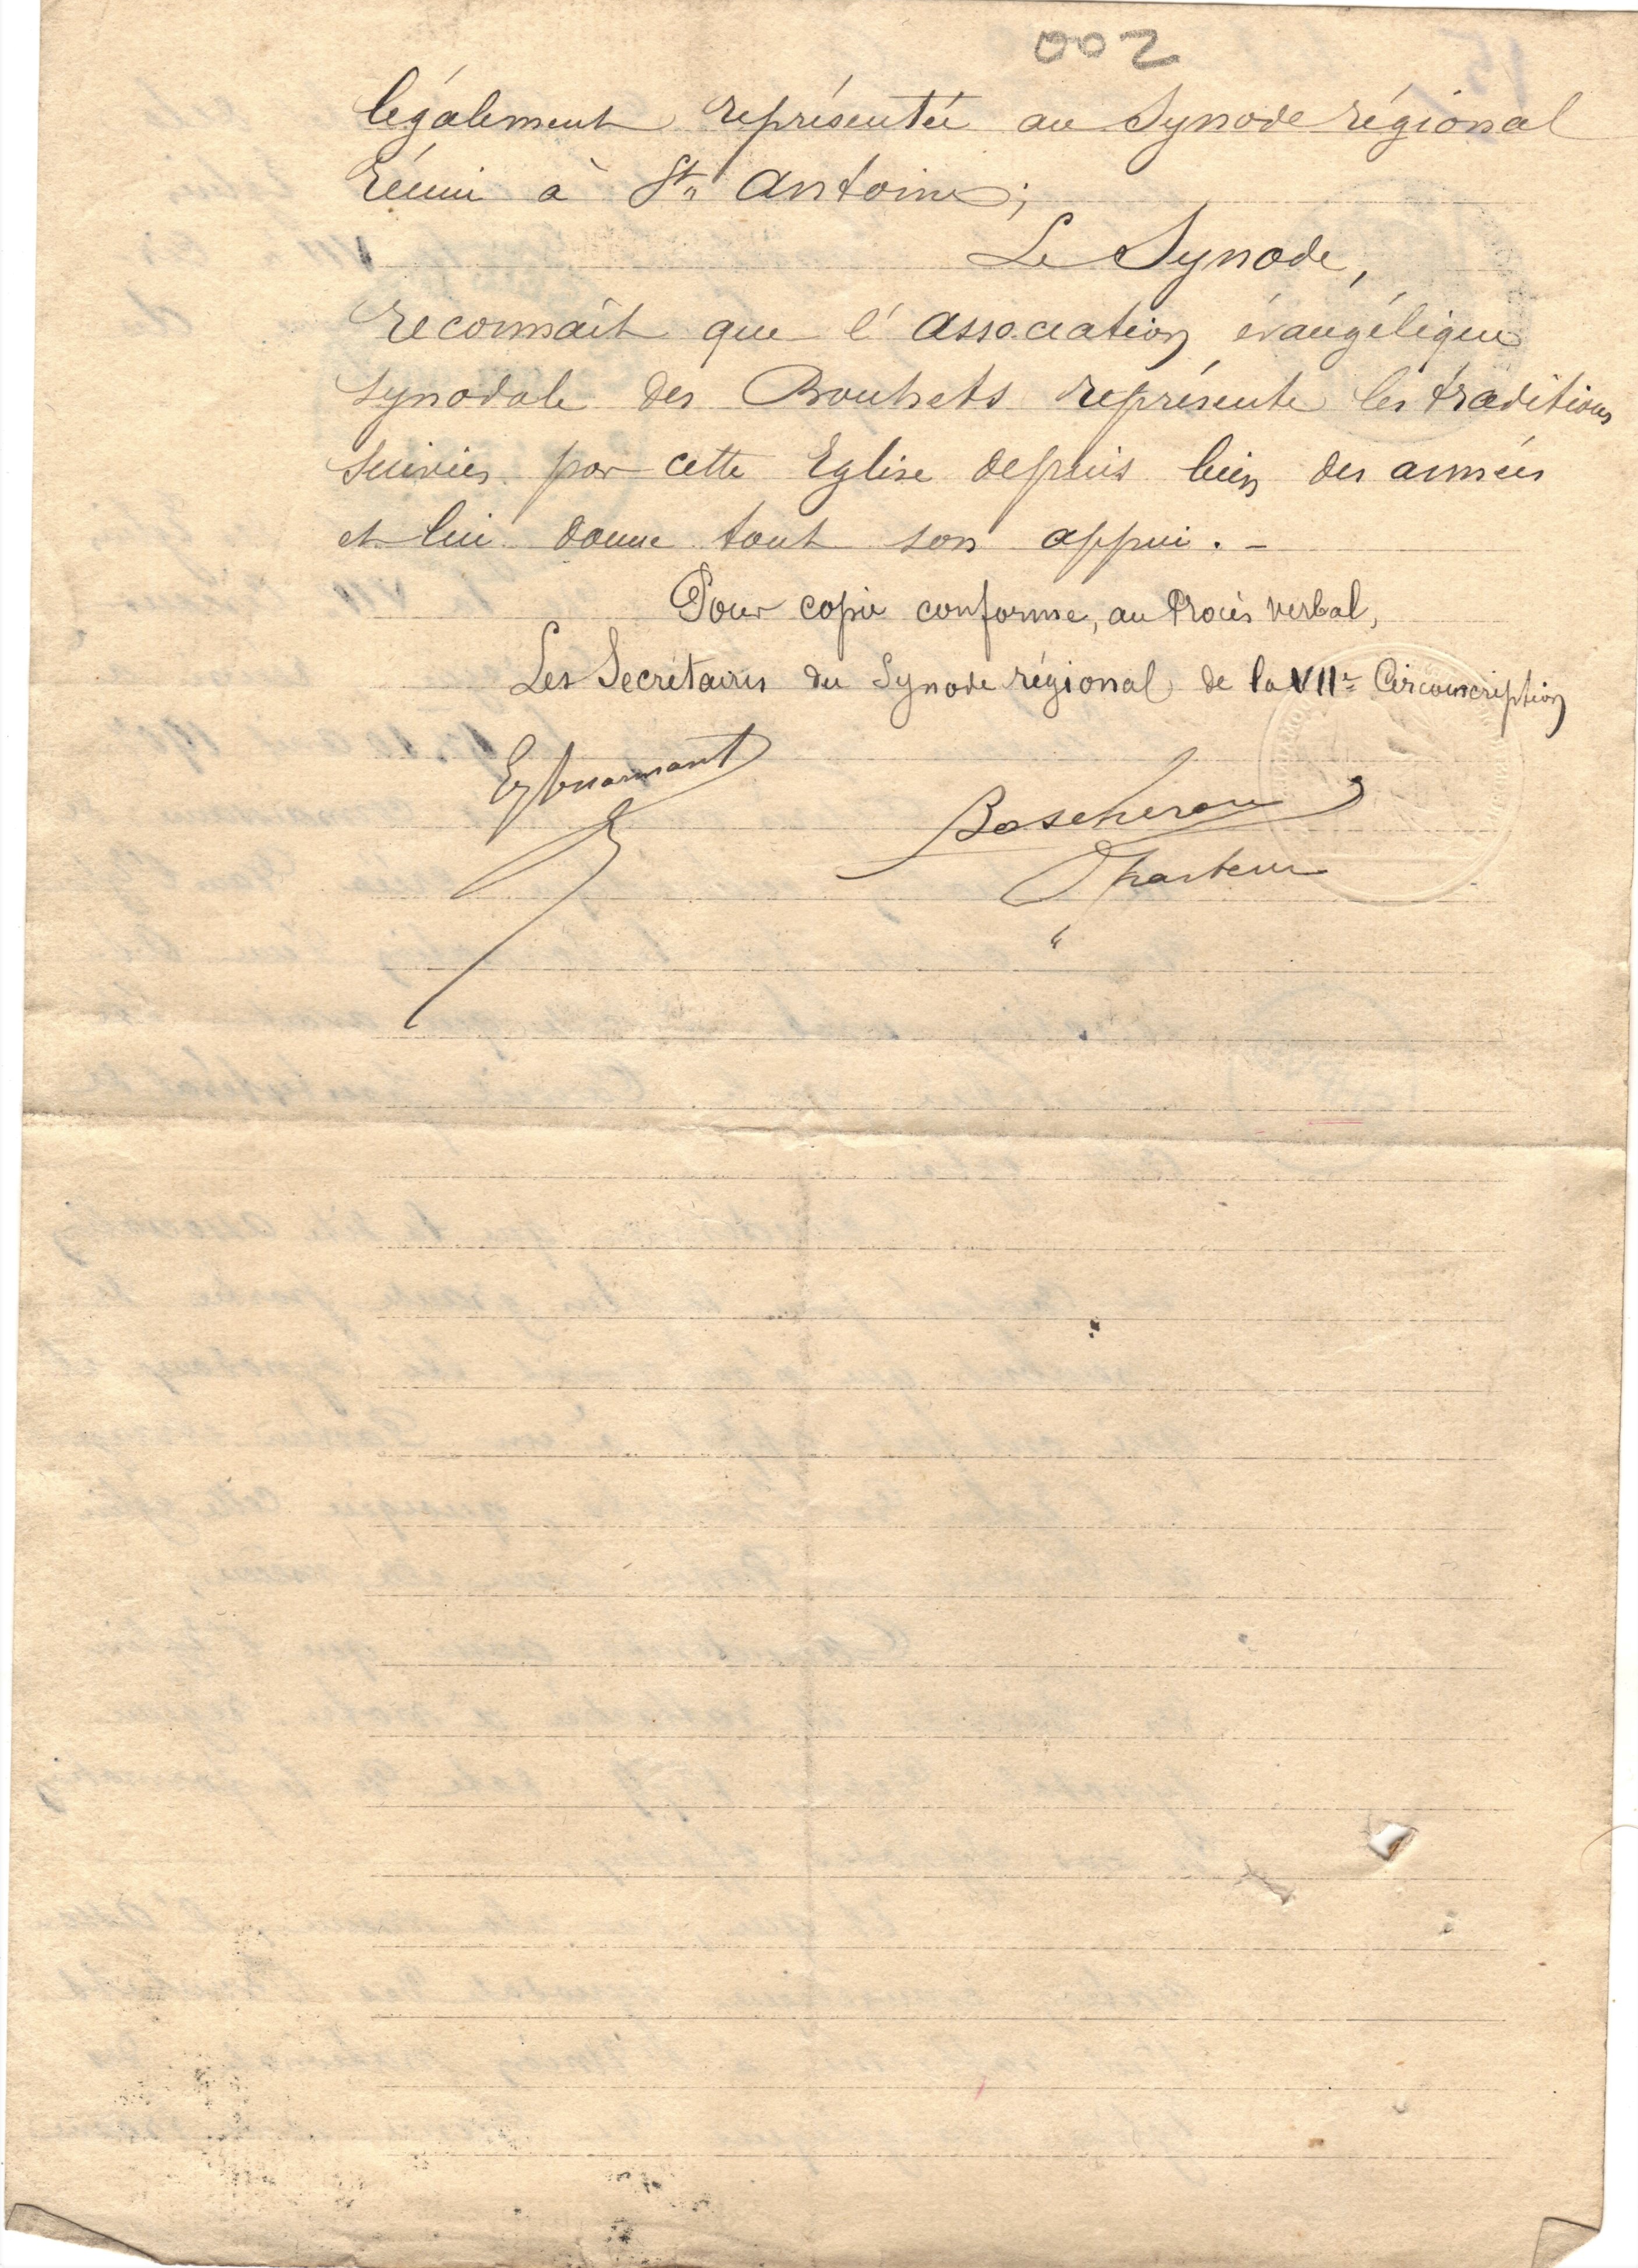 002
légalement représentée au Synode régional
réuni à St Antoine;
Le Synode,
reconnaît que l'association évangélique
synodale des Bouhets représente les traditions
suivies par cette Eglise depuis bien des années
et lui donne tout son appui. -
Pour copie conforme, au Procès verbal,
Les Secrétaires du Synode régional de la VIIe Circonscription
Boscheron
pasteur